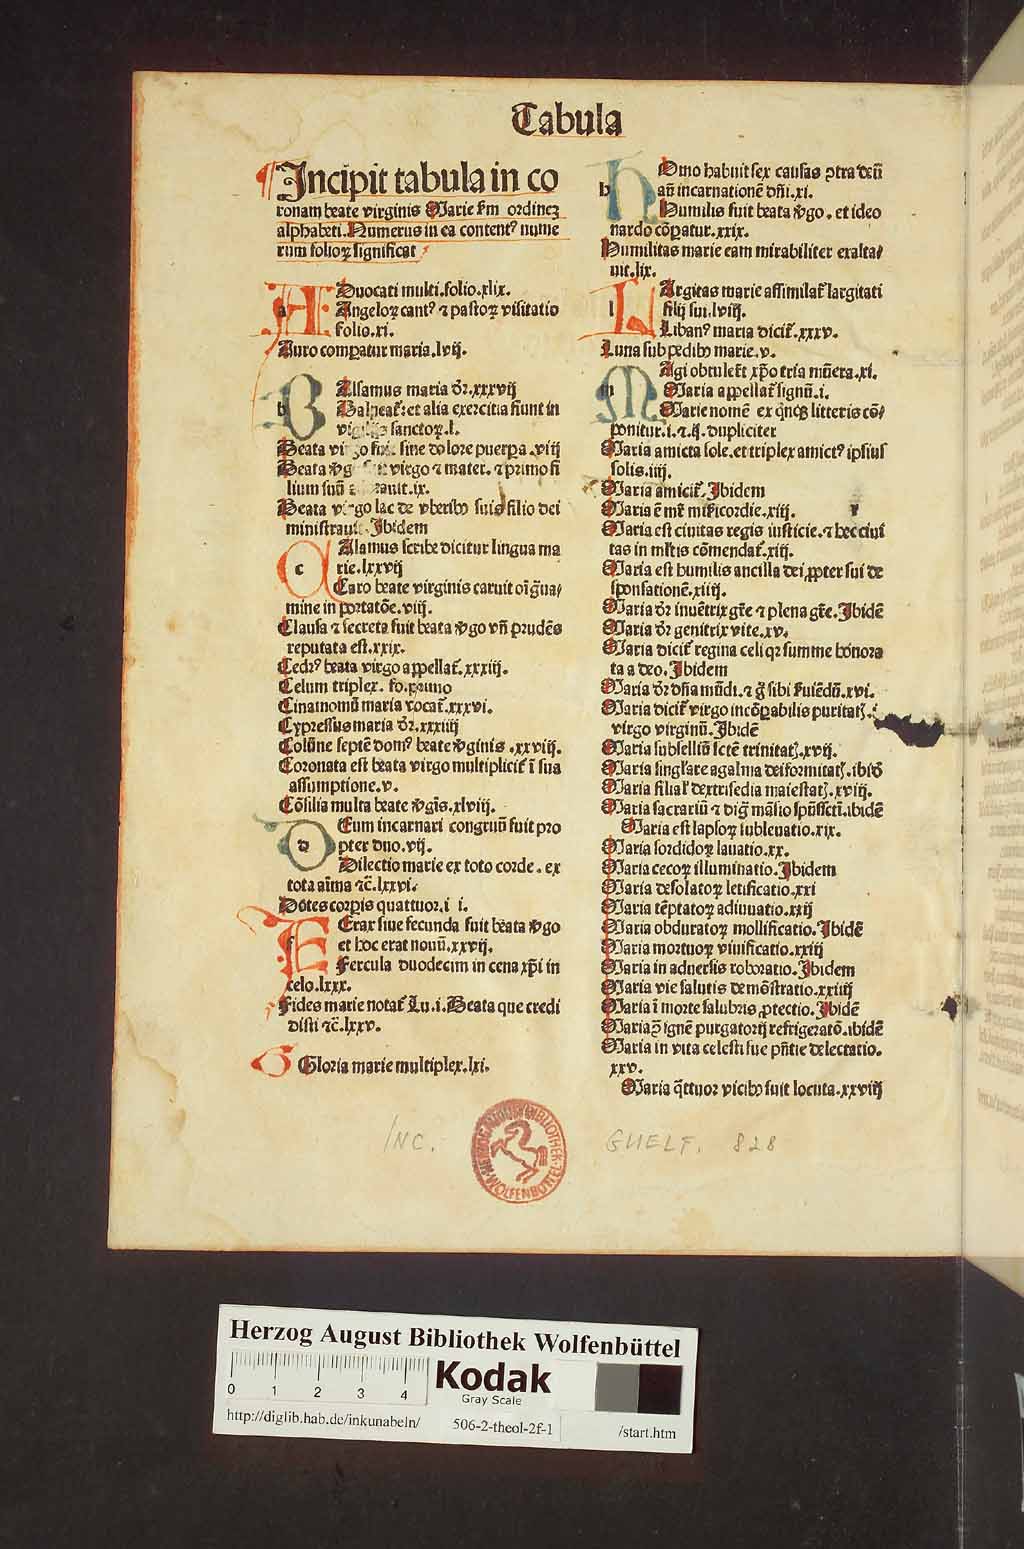 Tabula
Incipit tabula in co
ronam beate virginis Marie ẜm ordinez
alphabeti. Numerus in ea contentꝰ nume
rum folioꝝ significat
ADuocati multi. folio. xlix.
a Angeloꝝ cantꝰ ⁊ pastoꝝ visitatio
folio. xi.
Auro comparatur maria. lvij.
BAlsamus maria dr̄. xxxvij
b et alia exercitia fiunt in
sanctoꝝ. l.
Beata sine dolore puerpa. viij
Beata virgo ⁊ mater. ⁊ primo fi
lium suū .ix.
Beata virgo lac de vberibꝰ suis filio dei
ministrauit. Ibidem
CAlamus scribe dicitur lingua ma
c rie. lxxvij
Caro beate virginis caruit oi gͣua/
mine in portatōe. viij.
Clausa ⁊ secreta fuit beata v̓go vn̄ prudēs
reputata est. xxix.
Cedrꝰ beata virgo appellat᷑. xxxiij.
Celum triplex. fo. primo
Cinamomū maria vocat᷑. xxxvi.
Cypressus maria dr̄. xxxiiij
Colūne septē domꝰ beate v̓ginis .xxviij.
Coronata est beata virgo multiplicit᷑ ī sua
assumptione. v.
Cōsilia multa beate v̓gīs. xlviij.
DEum incarnari congruū fuit pro
d pter duo. vij.
Dilectio marie ex toto corde. ex
tota aīma ⁊c̄. lxxvi.
Dotes corpis quattuor. i i.
FErax siue fecunda fuit beata v̓go
f et hoc erat nouū. xxvij.
Fercula duodecim in cena xp̄i in
celo. lxxx.
Fides marie notat᷑ Lu. i. Beata que credi
disti ⁊c̄. lxxv.
Gloria marie multiplex. lxi.
HOmo habuit sex causas ꝯtra deū
h an̄ incarnationē dn̄i. xi.
Humilis fuit beata v̓go. et ideo
nardo cōparatur. xxix.
Humilitas marie eam mirabiliter exalta/
uit. lix.
LArgitas marie assimilat᷑ largitati
l filij sui. lviij.
Libanꝰ maria dicit᷑. xxxv.
Luna sub pedibꝰ marie. v.
MAgi obtuler̄t xp̄o tria mūera. xi.
m Maria appellat᷑ signū. i.
Marie nomē ex qͥncꝫ litteris cō/
ponitur. i. ⁊. ij. dupliciter
Maria amicta sole. et triplex amictꝰ ipsius
solis. iiij.
Maria amicit᷑. Ibidem
Maria ē mr̄ mīẜicordie. xiij.
Maria est ciuitas regis iusticie. ⁊ hec ciui
tas in ml̓tis cōmendat᷑. xiij.
Maria est humilis ancilla dei ꝓpter sui de
sponsationē. xiiij.
Maria dr̄ inuētrix gr̄e ⁊ plena gr̄e. Ibidē
Maria dr̄ genitrix vite. xv.
Maria dicit᷑ regina celi qꝛ summe honora
ta a deo. Ibidem
Maria dr̄ dn̄a mūdi. ⁊ qͦ sibi ẜuiēdū. xvi.
Maria dicit᷑ virgo incōparabilis puritatꝭ.
virgo virginū. Ibidē
Maria subselliū sctē trinitatꝭ. xvij.
Maria singl̓are agalma deiformitatꝭ. ibidē
Maria filial̓ dextrisedia maiestatꝭ. xviij.
Maria sacrariū ⁊ dig māsio spūssctī. ibidē
Maria est lapsoꝝ subleuatio. xix.
Maria sordidoꝝ lauatio. xx.
Maria cecoꝝ illuminatio. Ibidem
Maria desolatoꝝ letificatio. xxi
Maria tēptatoꝝ adiuuatio. xxij
Maria obduratoꝝ mollificatio. Ibidē
Maria mortuoꝝ viuificatio. xxiij
Maria in aduersis roboratio. Ibidem
Maria vie salutis demōstratio. xxiiij
Maria ī morte salubris ꝓtectio. Ibidē
Maria ꝯͣ ignē purgatorij refrigeratō. ibidē
Maria in vita celesti sue pn̄tie delectatio.
xxv.
Maria qͣttuor vicibꝰ fuit locuta. xxviij
INC. GUELF. 828
HERZOG AUGUST BIBLIOTHEK WOLFENBÜTTEL
Herzog August Bibliothek Wolfenbüttel
0 1 2 3 4
Kodak
Gray Scale
http://diglib.hab.de/inkunabeln/ 506-2-theol-2f-1 /start.htm